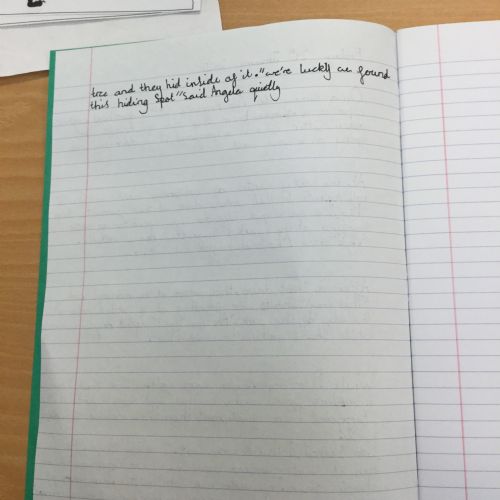 tree and they hid inside of it. "we're lucky we found
this hiding spot" said Angela quietly